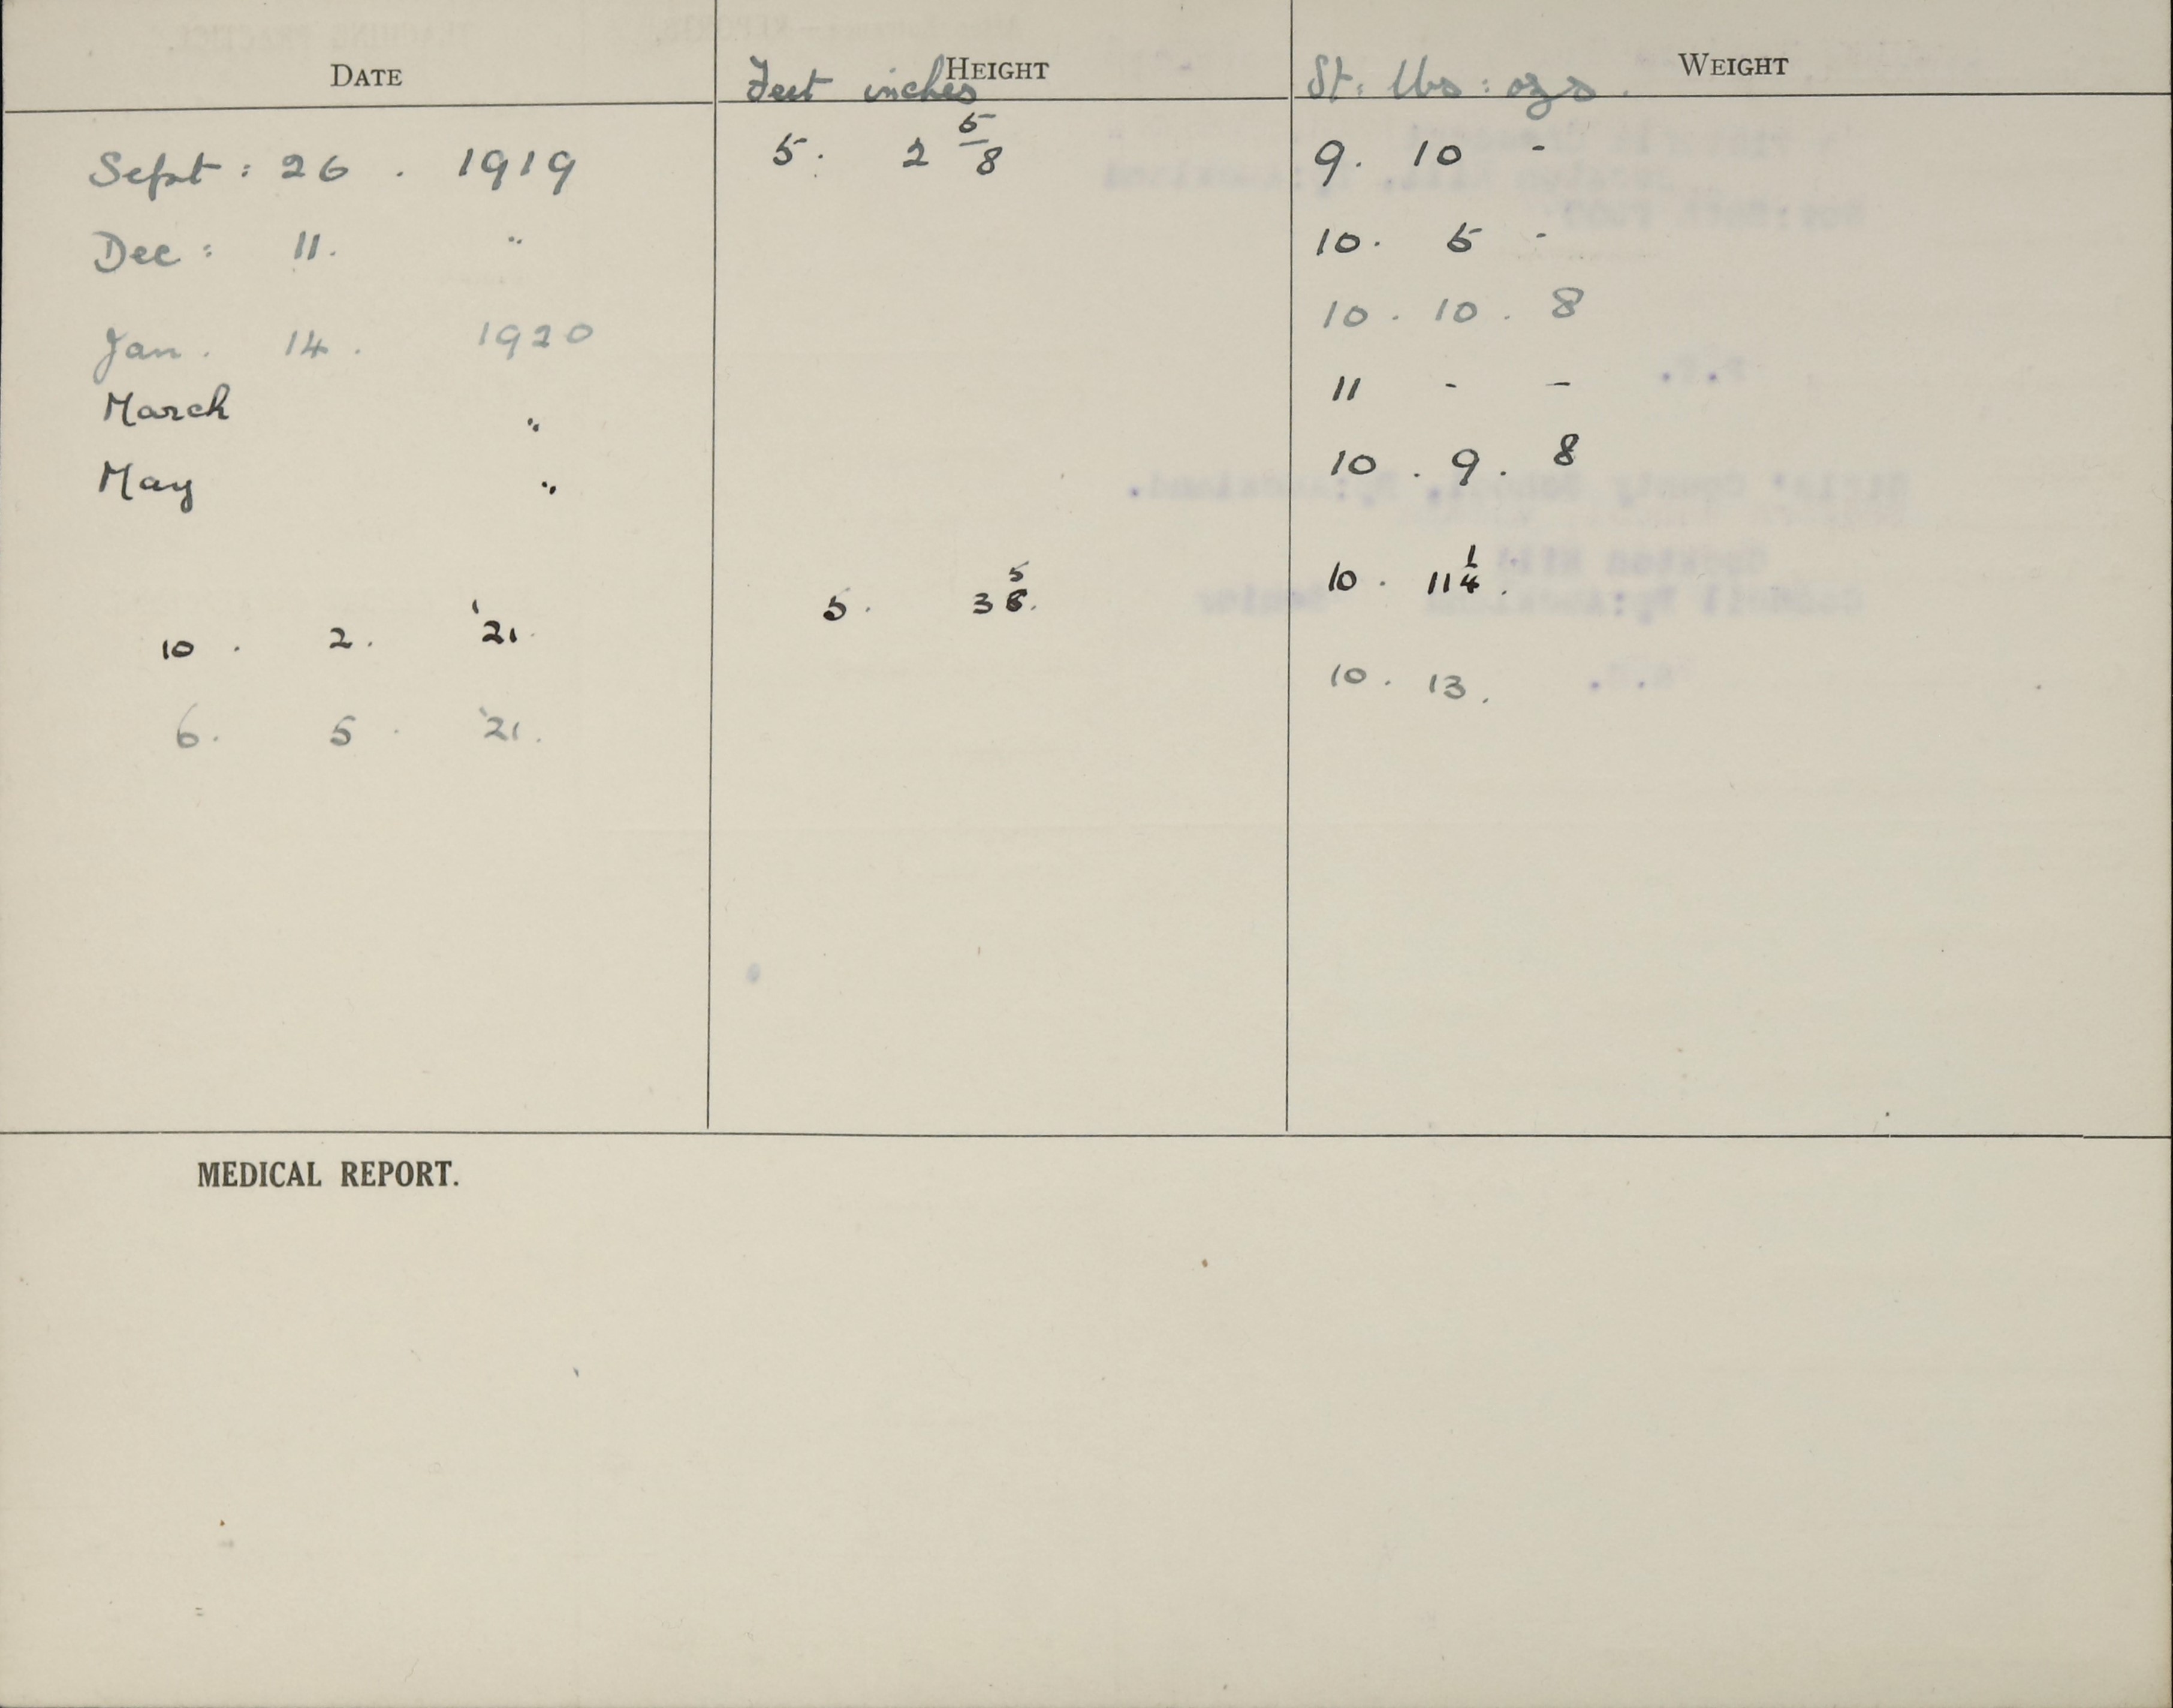 DATE HEIGHT WEIGHT
Feet inches St: lbs: ozs.
Sept: 26. 1919 5. 2 5/8 9. 10 -
Dec: 11. " 10. 5 -
Jan. 14. 1920 10. 10. 8
March " 11 - -
May " 10. 9. 8
10. 2. '21. 5. 3 5/8. 10. 11 1/4.
6. 5. '21. 10. 13.
MEDICAL REPORT.